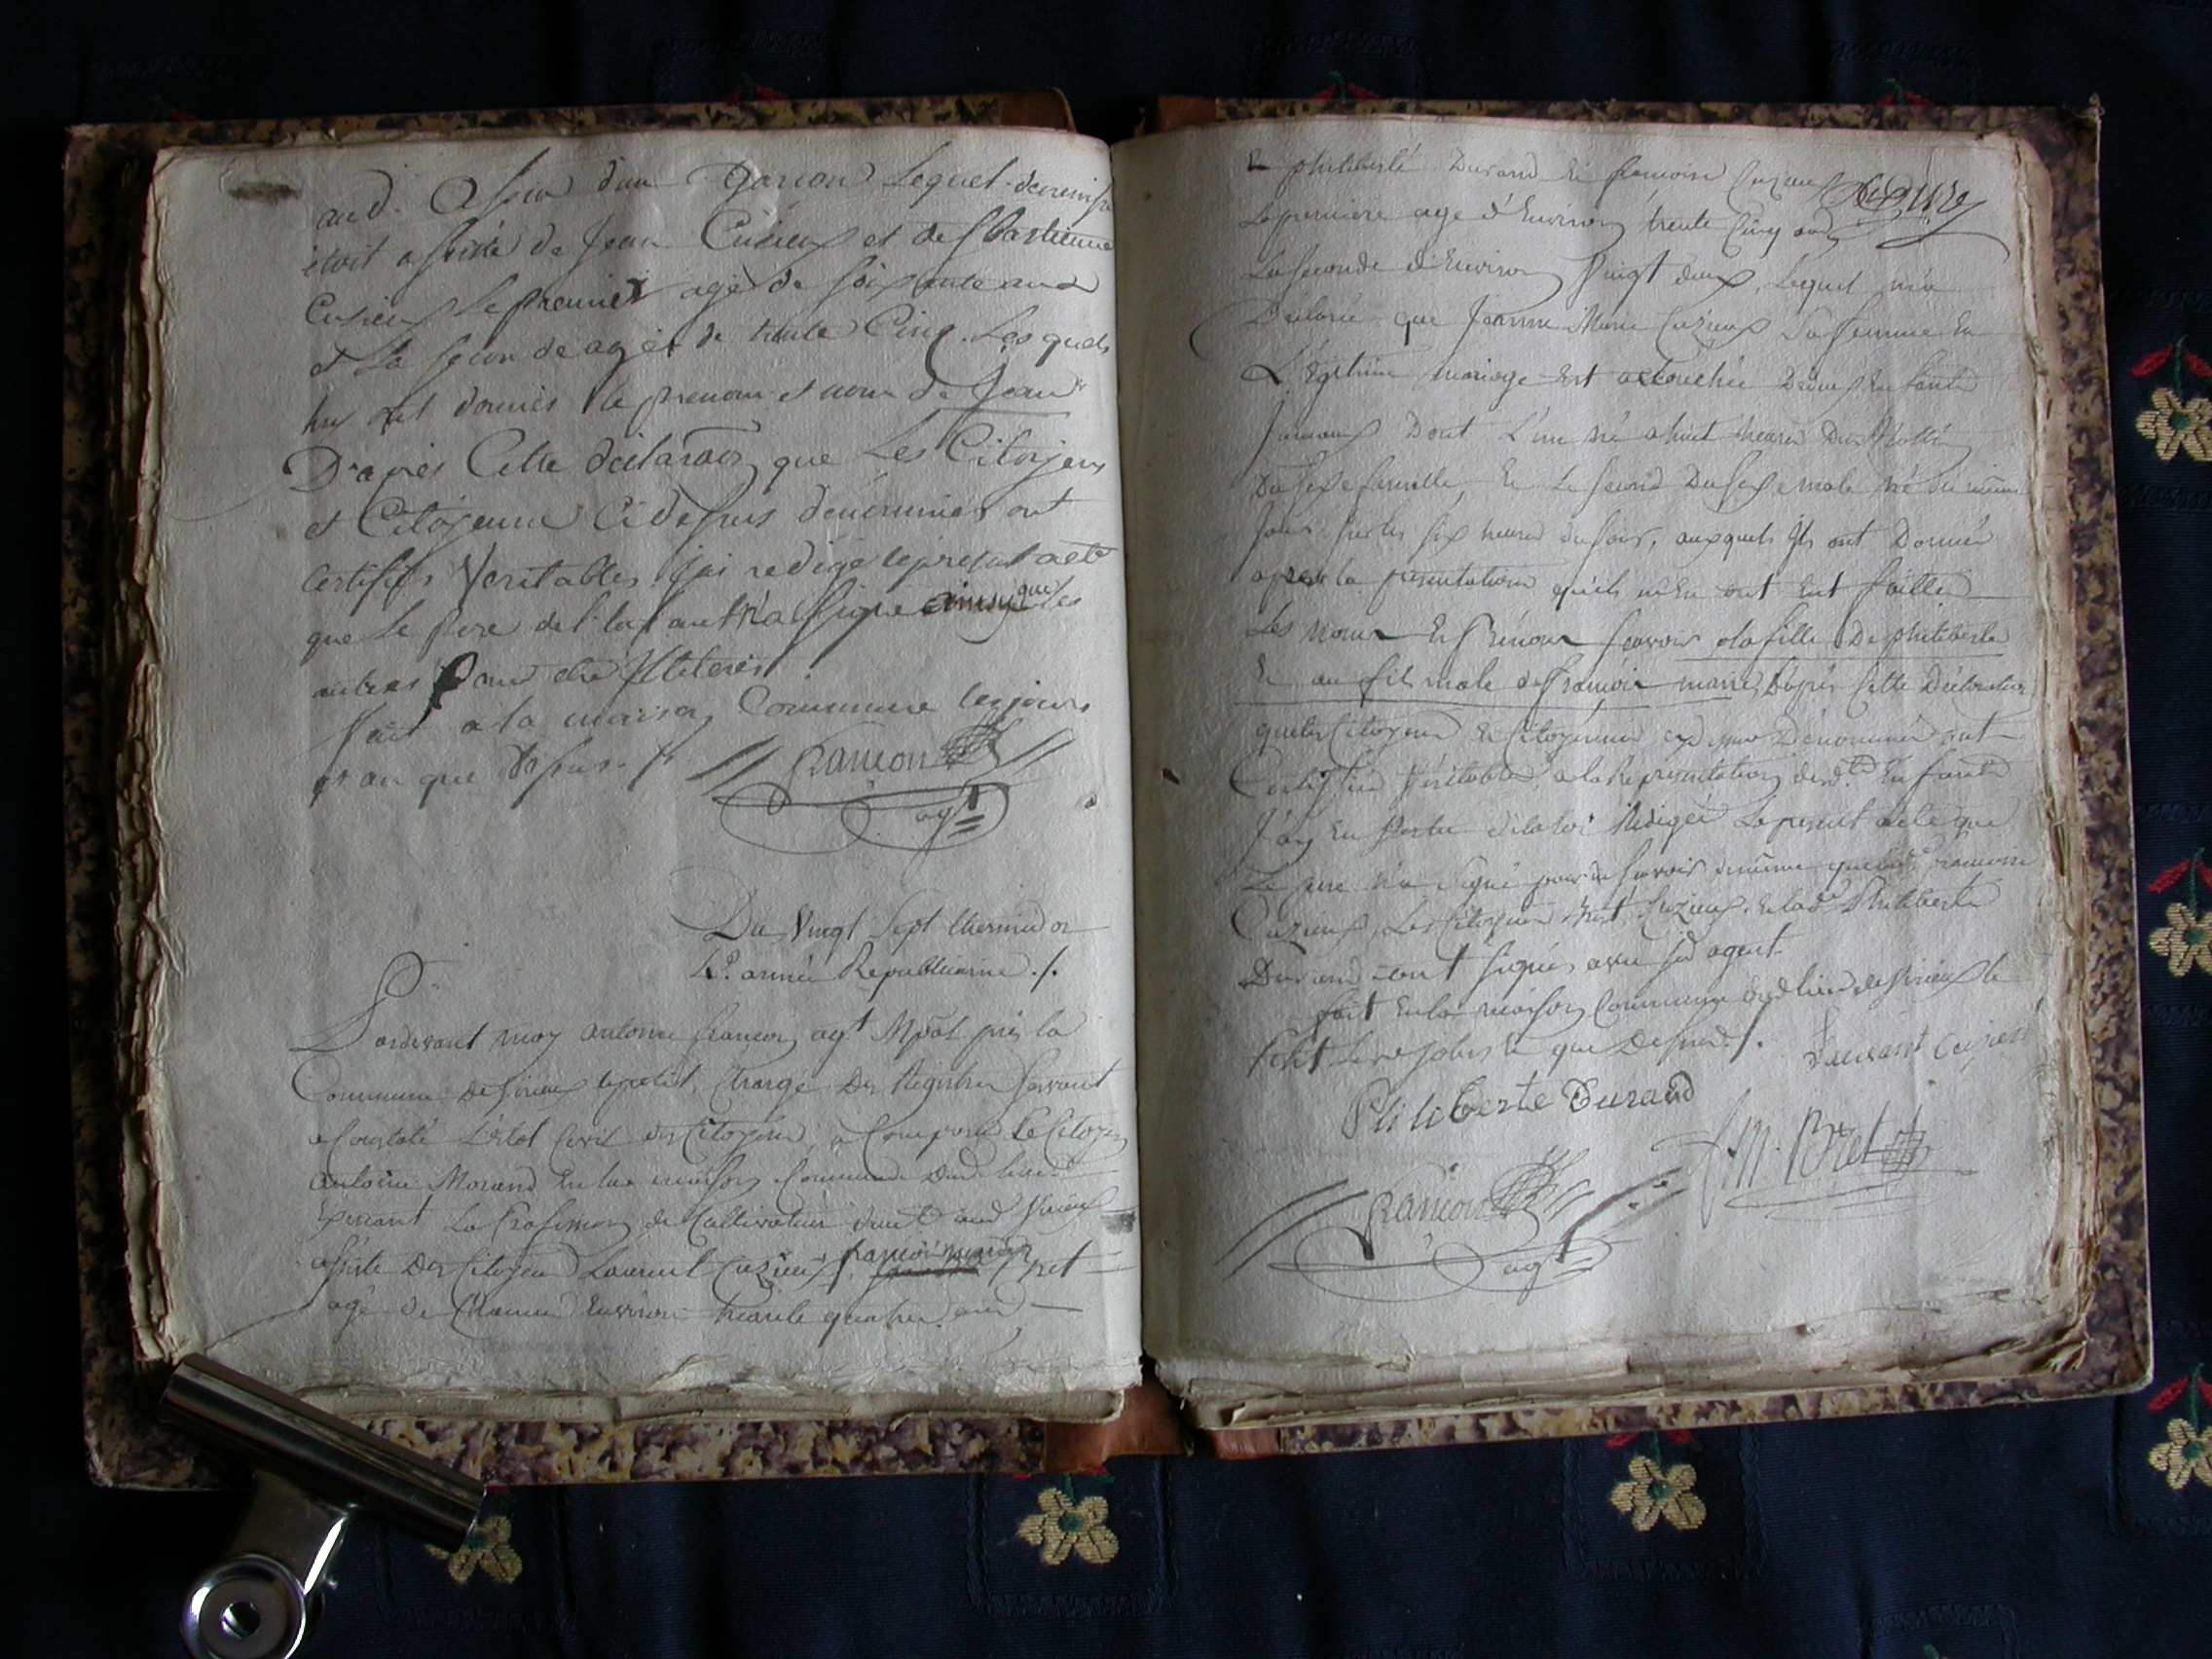 and. d'un garcon Lequel
étoit assisté de Jean Cuzieux et de
Cuzieux Le premier agé de soixante ans
et La seconde agée de trente Cinq. Les quels
luy ont donnés le prenom et nom de Jean
D'après Cette déclaraon que Les Citoyens
et Citoyenne Cidessus dénommés ont
Certifiés Veritables j'ai redigé le present acte
que Le Pere de l'enfant n'a signé ainsy que les
autres pour être Illiterés
fait a la maison Commune les jours
et an que dessus ./.
francon
agt
Du Vingt Sept thermidor
4e. année Republicaine ./.
Pardevant moy antoine francon agt Mpal près la
Commune de le petit, Chargé Des Registres servant
a Constaté L'état Civil des Citoyens, a Comparu Le Citoyen
antoine Morand En la maison Commune Dud. lieu
Exercant La Profession de Cultivateur
assisté Des Citoyens Laurent Cuzieux, francois marie Bret
agé de Chacun Environ trente quatre ans
Et philiberte Durand Et francoise Cuzieux
La premiere agé d'Environ trente Cinq ans
La seconde d'Environ Vingt deux, Lequel m'a
Déclaré que Jeanne Marie Cuzieux Sa femme En
L'égitime mariage Est accouchée De deux Enfants
Jumeaux Dont L'un né a huit heures Du Matin
Du sexe femelle, Et Le second Du sexe male né du même
jour sur les six heures du soir, auxquels Ils ont Donné
après la presentation qu'ils m'En ont Eut faitte
Les Noms Et Prénoms scavoir a la fille De philiberte
Et au fils male de francois marie, D'après Cette Déclaration
que les Citoyens Et Citoyennes cy dessus Dénommés ont
Certiffié Véritable, a la Representation desd. Enfants
J'ay En Vertu de la loi Rédigé Le present acte que
Le pere n'a Signé pour ne scavoir de même que lad. francoise
Cuzieux, Les Citoyens Bret, Cuzieux. Et lad. Philiberte
Durand ont signés avec led agent.
fait En la maison Commune dud lieu de le
Petit Les jours Et que Dessus ./.
Laurant Cuzieu
Philiberte Durand
f. m. Bret
francon
agt